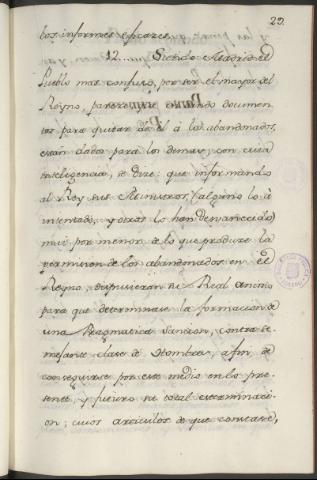 29.
los informes eficaces.
12. Siendo Madrid el
Pueblo mas confuso, por ser el mayor del
Reyno, parece que dando documen-
tos para quitar de el á los abandonados,
estan dados para los demas; con cuia
inteligencia, se dize: que informando
al Rey sus Ministros, (alguno lo á
intentado, y otros lo han desvanecido)
mui por menor, de lo que produze la
permision de los abandonados en el
Reyno, dispusieran su Real animo
para que determinase la formacion de
una Pragmatica Sancion, contra se-
mejante clase de Hombres, afin de
conseguirse por este medio en lo pre-
sente, y futuro su total exterminaci-
on; cuios articulos de que constase,